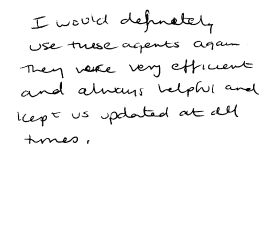 I would definetely
use these agents again
They were very efficient
and always helpful and
kept us updated at all
times.